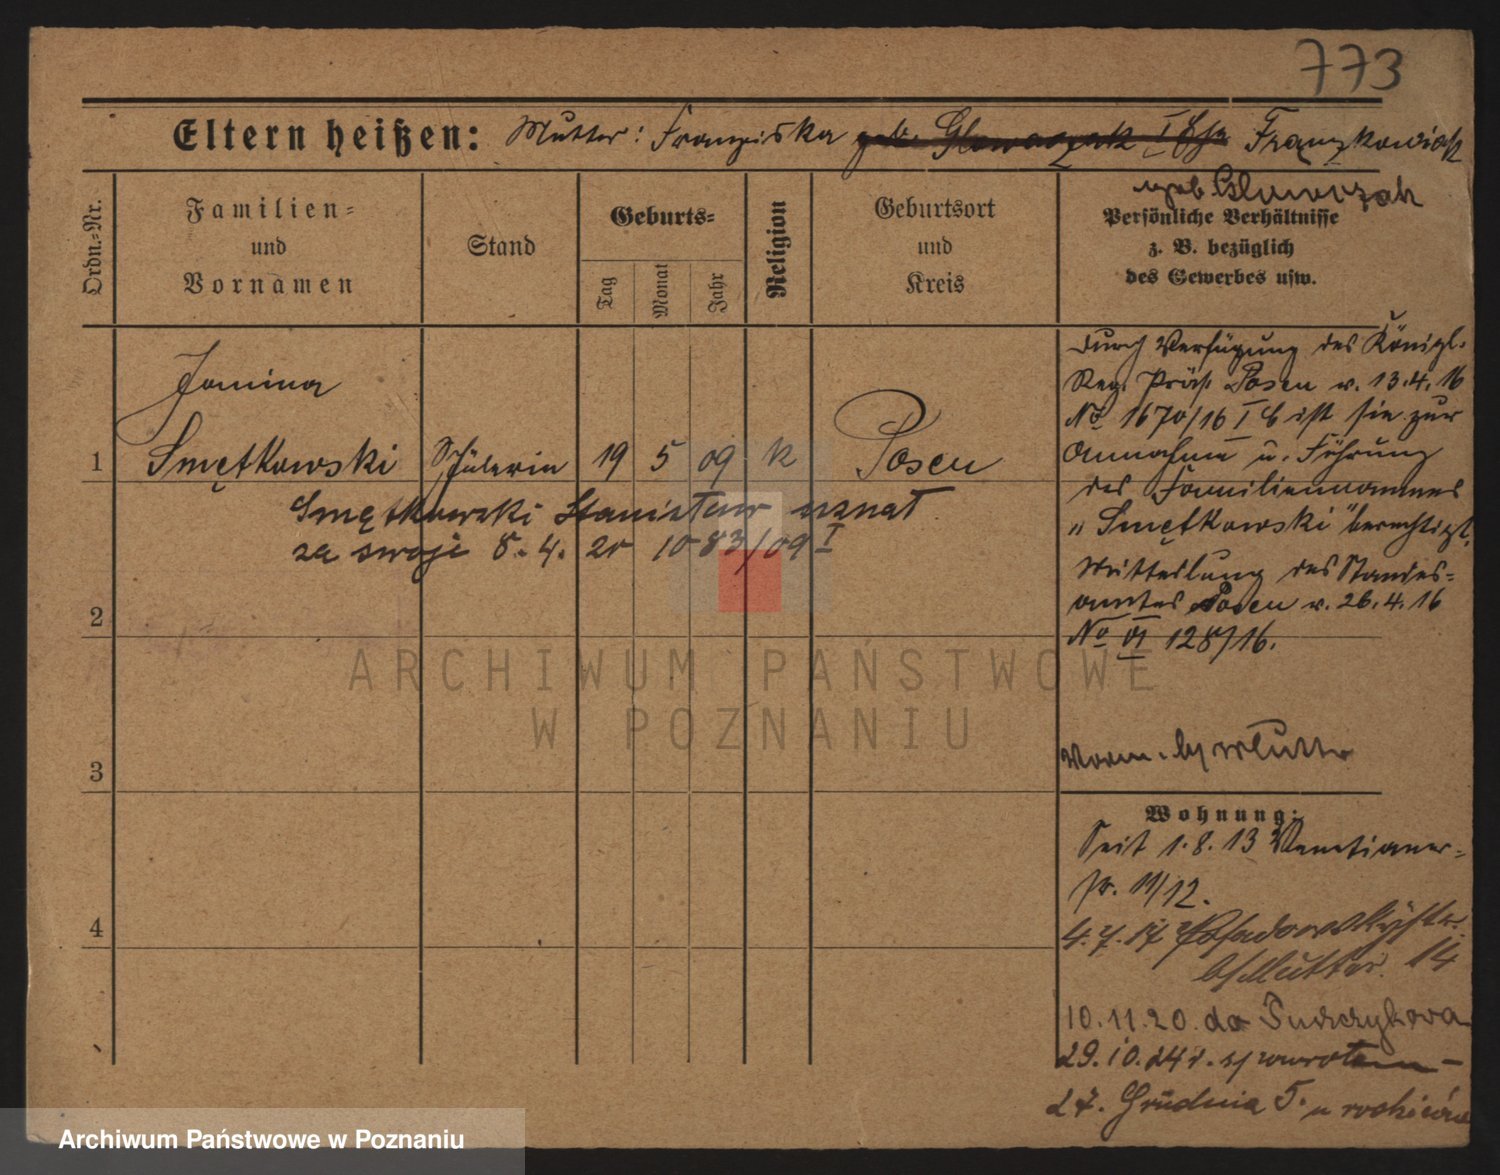 773
Eltern heißen: Mutter: Franziska geb. Glowaczak Franzkowiak
geb. Glowaczak
Ordn.-Nr.
Familien-
und
Vornamen
Stand
Geburts-
Tag
Monat
Jahr
Religion
Geburtsort
und
Kreis
Persönliche Verhältnisse
z. B. bezüglich
des Gewerbes usw.
Janina
1 Smętkowski Schülerin 19 5 09 k Posen
Smętkowski Stanisław uznał
za swoje 8. 4. 20 1083/09 I
2
3
4
Durch Verfügung des Königl.
Reg. Präs. Posen v. 13.4.16
No 1670/16 I b ist sie zur
Annahme u. Führung
des Familiennamens
"Smętkowski" berechtigt.
Mitteilung des Standes-
amtes Posen v. 26.4.16
No VI 128/16.
Vorm. bei Mutter
Wohnung:
Seit 1.8.13 Venetianer-
str. 11/12.
4.7.17 Posadowskystr.
b/Mutter. 14
10.11.20. do
29.10.24 r. z powrotem
27. Grudnia 5. u rodziców
ARCHIWUM PAŃSTWOWE
W POZNANIU
Archiwum Państwowe w Poznaniu